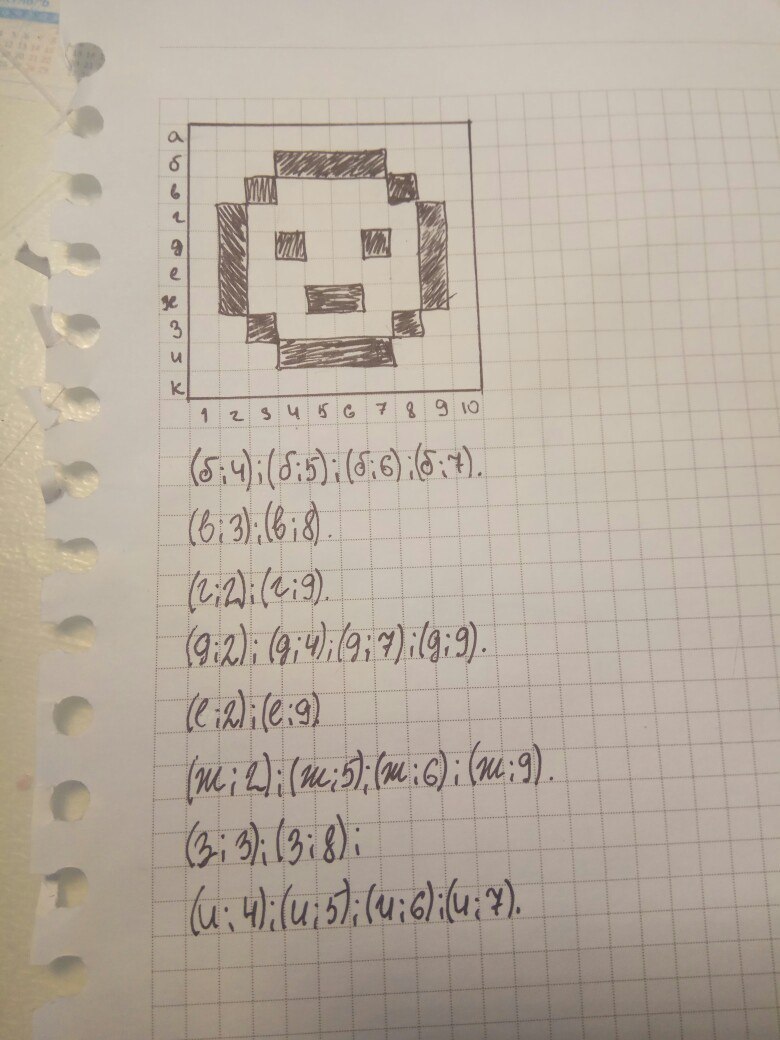 а
б
в
г
д
е
ж
з
и
к
1 2 3 4 5 6 7 8 9 10
(б;4);(б;5);(б;6);(б;7).
(в;3);(в;8).
(г;2);(г;9).
(д;2);(д;4);(д;7);(д;9).
(е;2);(е;9)
(ж;2);(ж;5);(ж;6);(ж;9).
(з;3);(з;8);
(и;4);(и;5);(и;6);(и;7).